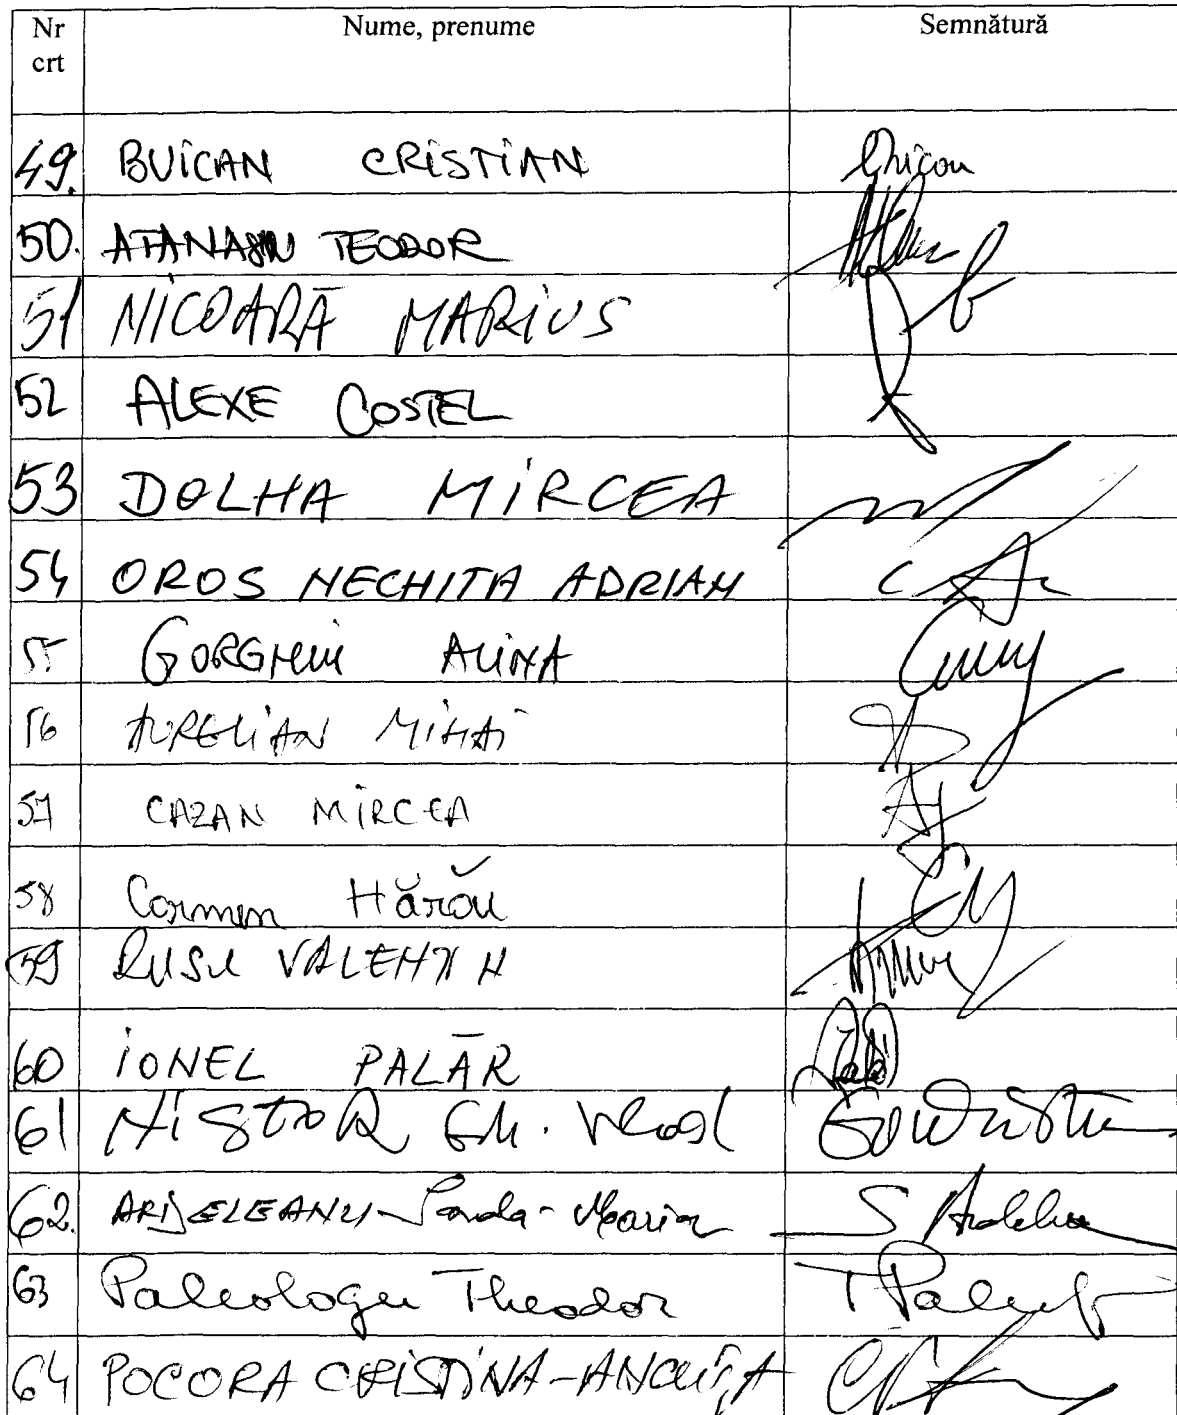 Nr crt Nume, prenume Semnătură
49. BUICAN CRISTIAN
50. ATANASIU TEODOR
51 NICOARĂ MARIUS
52 ALEXE COSTEL
53 DOLHA MIRCEA
54 OROS NECHITA ADRIAN
55 GORGHIU ALINA
56 AURELIAN MIHAI
57 CAZAN MIRCEA
58 Carmen Hărău
59 RUSU VALENTIN
60 IONEL PALĂR
61 NISTOR Gh. Vlad
62. ARDELEANU-Sanda-Maria S Ardelea
63 Paleologu Theodor T Paleologu
64 POCORA CRISTINA-ANCUȚA